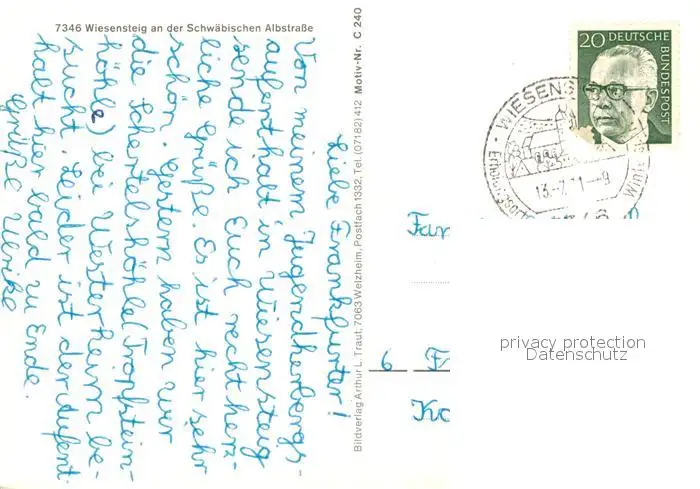 7346 Wiesensteig an der Schwäbischen Albstraße
Liebe Frankfurter!
Von meinem Jugendherbergs-
aufenthalt in Wiesensteig
sende ich Euch recht herz-
liche Grüße. Es ist hier sehr
schön. Gestern haben wir
die Schertelshöhle (Tropfstein-
höhle) bei Westerheim be-
sucht. Leider ist der Aufent-
halt hier bald zu Ende.
Grüße Ulrike
Bildverlag Arthur L. Traut, 7063 Welzheim, Postfach 1332, Tel. (07182) 412 Motiv-Nr. C 240
20 DEUTSCHE
BUNDESPOST
WIESENS
13.-7.71--9
Fam
6 Fr
privacy protection
Datenschutz